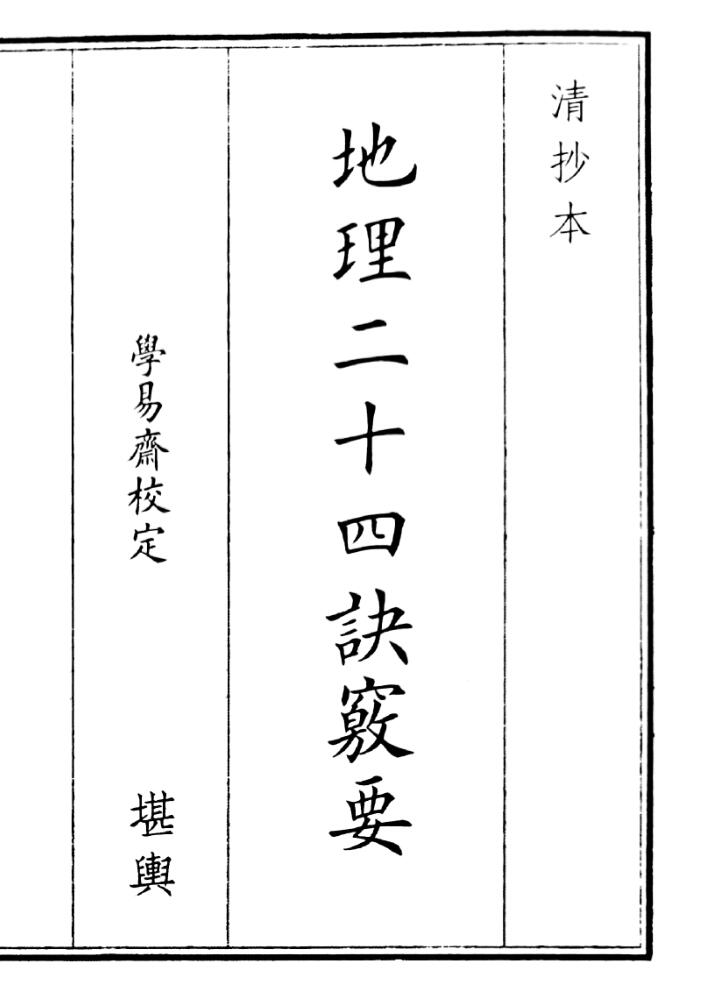 清抄本
地理二十四訣竅要
學易齋校定
堪輿